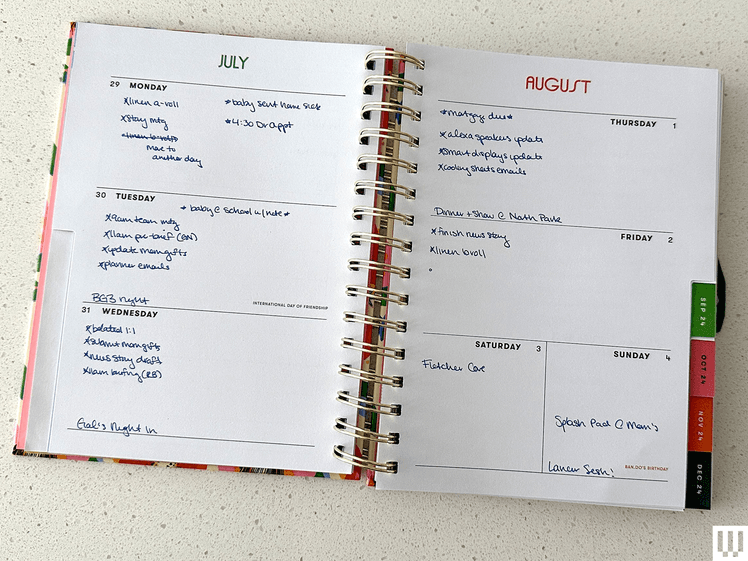 JULY
29 MONDAY
*linen a-roll
*baby sent home sick
*stay mtg
*4:30 Dr appt
move to
another day
30 TUESDAY
*baby @ school w/note*
*9am team mtg
*11am pre-brief (BN)
*update momgifts
*planner emails
BG3 night
INTERNATIONAL DAY OF FRIENDSHIP
31 WEDNESDAY
*belated 1:1
*submit momgifts
*news story draft
*11am briefing (RB)
Gal's Night In
AUGUST
THURSDAY 1
*matgay due*
*alexa speakers update
*smart displays update
*coding sheets emails
Dinner + Show @ North Park
FRIDAY 2
*finish news story
*linen broll
SATURDAY 3
Fletcher Cove
SUNDAY 4
Splash Pad @ Mom's
Lancer Sesh!
BAN.DO'S BIRTHDAY
SEP 24
OCT 24
NOV 24
DEC 24